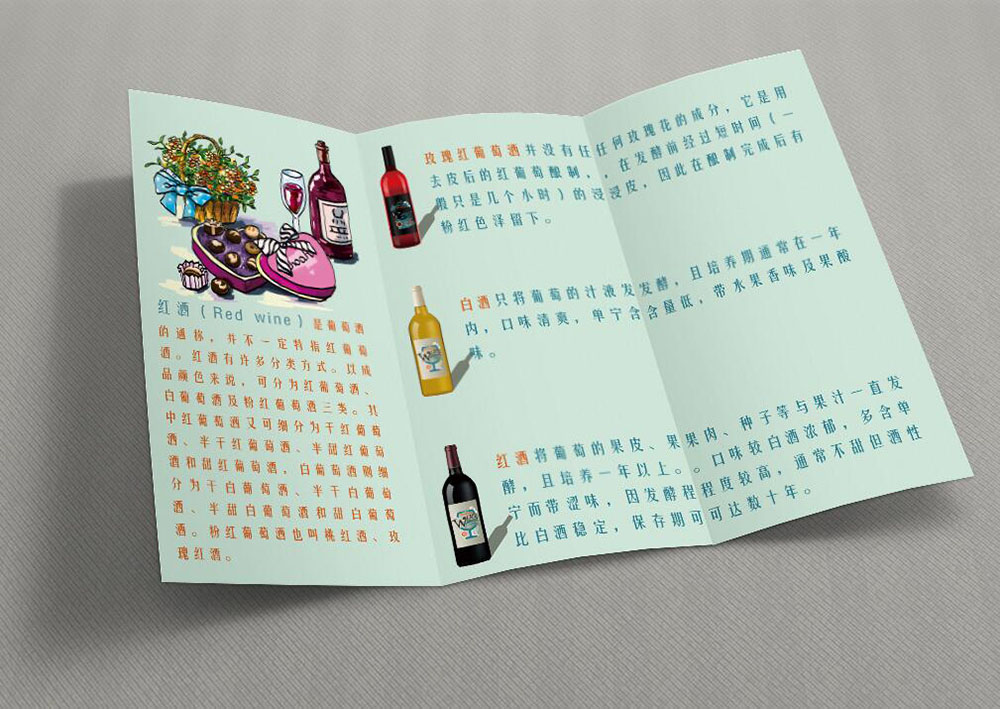 红酒(Red wine)是葡萄酒
的通称，并不一定特指红葡萄
酒。红酒有许多分类方式。以成
品颜色来说，可分为红葡萄酒、
白葡萄酒及粉红葡萄酒三类。其
中红葡萄酒又可细分为干红葡萄
酒、半干红葡萄酒、半甜红葡萄
酒和甜红葡萄酒，白葡萄酒则细
分为干白葡萄酒、半干白葡萄
酒、半甜白葡萄酒和甜白葡萄
酒。粉红葡萄酒也叫桃红酒、玫
瑰红酒。
玫瑰红葡萄酒并没有任任何玫瑰花的成分，它是用
去皮后的红葡萄酿制，，在发酵前经过短时间(一
般只是几个小时)的浸浸皮，因此在酿制完成后有
粉红色泽留下。
白酒只将葡萄的汁液发发酵，且培养期通常在一年
内，口味清爽，单宁含含量低，带水果香味及果酸
味。
红酒将葡萄的果皮、果果肉、种子等与果汁一直发
酵，且培养一年以上。。口味较白酒浓郁，多含单
宁而带涩味，因发酵程程度较高，通常不甜但酒性
比白酒稳定，保存期可可达数十年。